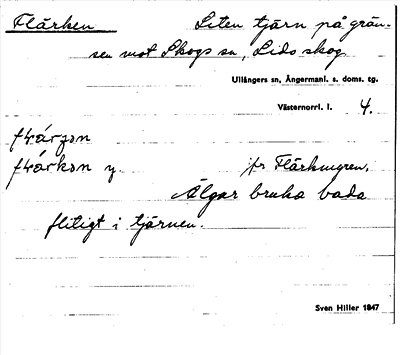 Flärken Liten tjärn på grän-
sen mot Skogs sn, Lidoskog
Ullångers sn, Ångermanl. s. doms. tg.
Västernorrl. l. 4.
y. jfr Flärkmyren.
Älgar bruka bada
flitigt i tjärnen.
Sven Hiller 1947